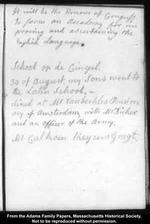 it will be the Honour of Congress
to form an Academy for im
proving and ascertaining the
English Language.
School on de Cingel.
30 of August my Sons went to
the Latin School, –
dined at
of Amsterdam, with Mr
and an officer of the Army,
Mr Calhoen
From the Adams Family Papers, Massachusetts Historical Society.
Not to be reproduced without permission.